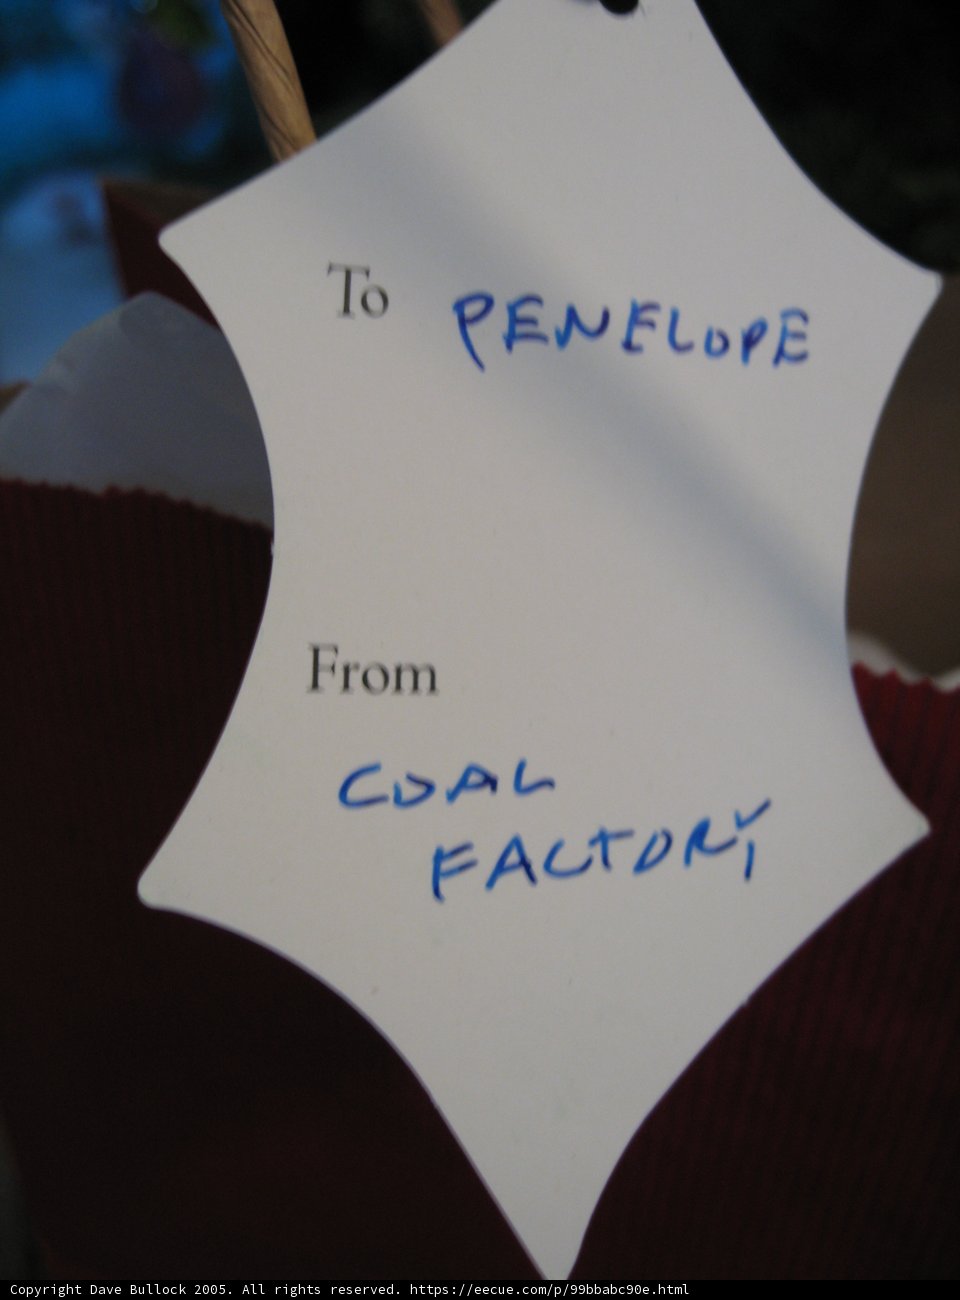 To PENELOPE
From
COAL
FACTORY
Copyright Dave Bullock 2005. All rights reserved. https://eecue.com/p/99bbabc90e.html